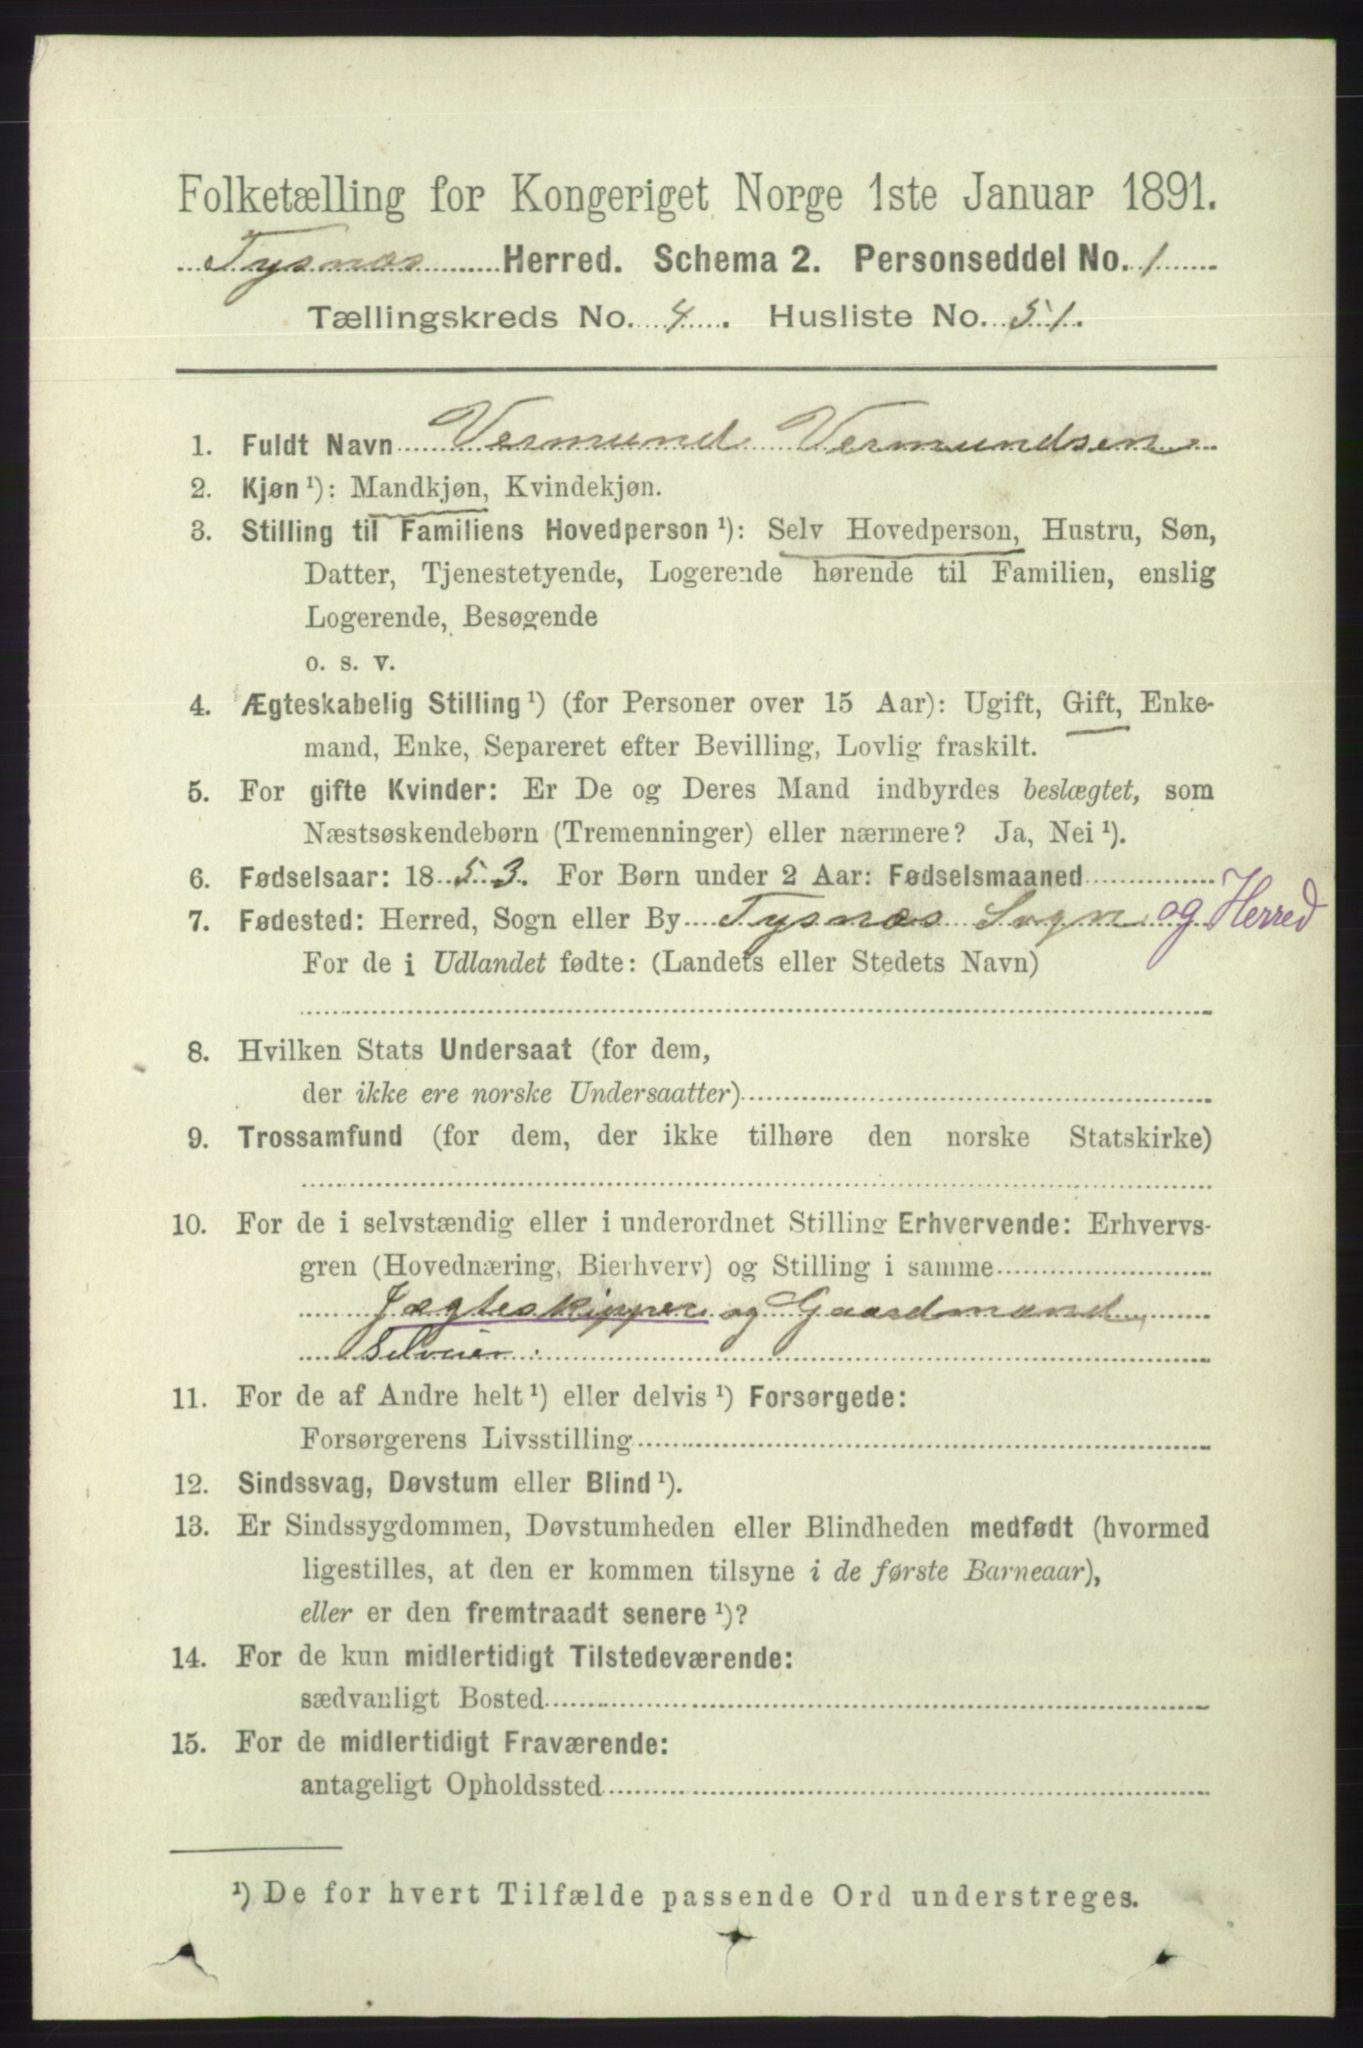 Folketælling for Kongeriget Norge 1ste Januar 1891.
Tysnæs Herred. Schema 2. Personseddel No. 1
Tællingskreds No. 4. Husliste No. 51.
1. Fuldt Navn Vermund Vermundsen
2. Kjøn ¹): Mandkjøn, Kvindekjøn.
3. Stilling til Familiens Hovedperson ¹): Selv Hovedperson, Hustru, Søn,
Datter, Tjenestetyende, Logerende hørende til Familien, enslig
Logerende, Besøgende
o. s. v.
4. Ægteskabelig Stilling ¹) (for Personer over 15 Aar): Ugift, Gift, Enke-
mand, Enke, Separeret efter Bevilling, Lovlig fraskilt.
5. For gifte Kvinder: Er De og Deres Mand indbyrdes beslægtet, som
Næstsøskendebørn (Tremenninger) eller nærmere? Ja, Nei ¹).
6. Fødselsaar: 1853. For Børn under 2 Aar: Fødselsmaaned
7. Fødested: Herred, Sogn eller By Tysnæs Sogn og Herred
For de i Udlandet fødte: (Landets eller Stedets Navn)
8. Hvilken Stats Undersaat (for dem,
der ikke ere norske Undersaatter)
9. Trossamfund (for dem, der ikke tilhøre den norske Statskirke)
10. For de i selvstændig eller i underordnet Stilling Erhvervende: Erhvervs-
gren (Hovednæring, Bierhverv) og Stilling i samme
Jægteskipper og Gaardmand
Selveier.
11. For de af Andre helt ¹) eller delvis ¹) Forsørgede:
Forsørgerens Livsstilling
12. Sindssvag, Døvstum eller Blind ¹).
13. Er Sindssygdommen, Døvstumheden eller Blindheden medfødt (hvormed
ligestilles, at den er kommen tilsyne i de første Barneaar),
eller er den fremtraadt senere ¹)?
14. For de kun midlertidigt Tilstedeværende:
sædvanligt Bosted
15. For de midlertidigt Fraværende:
antageligt Opholdssted
¹) De for hvert Tilfælde passende Ord understreges.